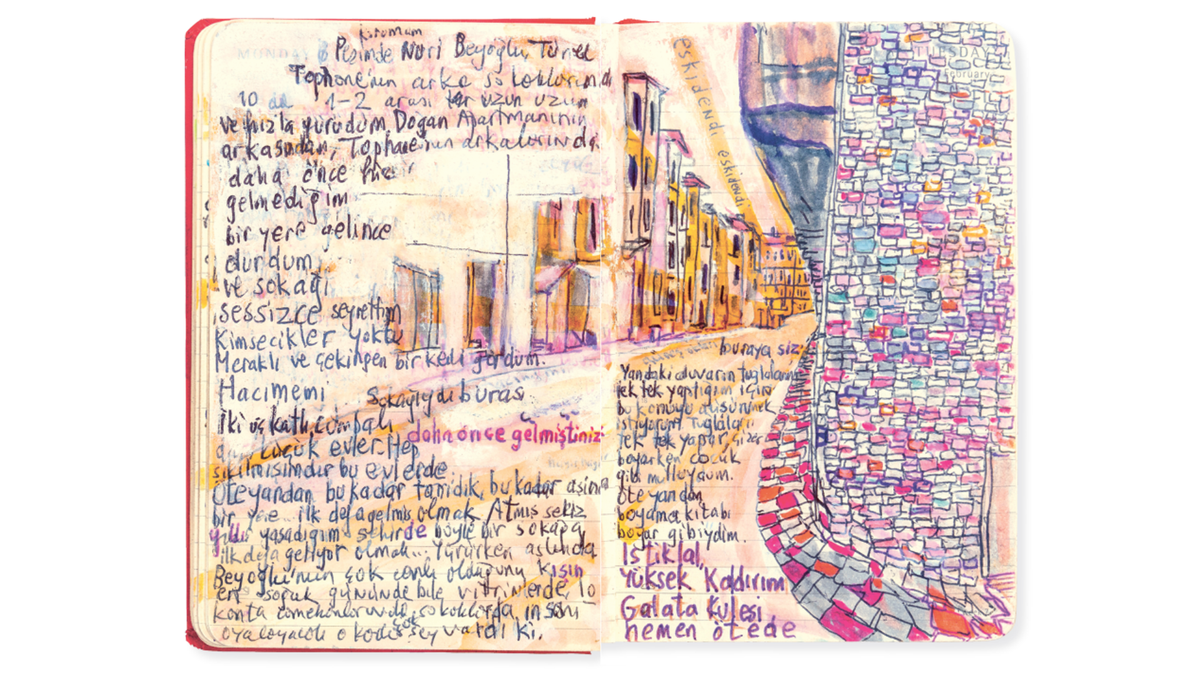 korumam
Peşimde Nuri Beyoğlu, Tünel
Tophane'nin arka sokaklarında
10 da 1-2 arası uzun uzun
ve hızla yürüdüm Doğan Apartmanının
arkasından, Tophane'nin arkalarında
daha önce hiç
gelmediğim
bir yere gelince
durdum
ve sokağı
sessizce seyrettim
Kimsecikler yoktu
Meraklı ve çekingen bir kedi gördüm.
Hacımemi Sokağıydı burası
İki üç katlı, cumbalı
küçük evler. Hep
sıkılmışımdır bu evlerde
Öte yandan bu kadar tanıdık, bu kadar aşina
bir yere ilk defa gelmiş olmak. Atmış sekiz
yıldır yaşadığım şehirde böyle bir sokağa
ilk defa geliyor olmak... Yürürken aslında
Beyoğlu'nun çok canlı olduğunu kışın
en soğuk gününde bile vitrinlerde, lo
kanta camekanlarında, sokaklarda insanı
oyalayacak o kadar çok şey vardı ki.
daha önce gelmiştiniz
TUESDAY
February
eskidendi eskidendi
buraya siz
Yandaki duvarın tuğlalarını
tek tek yaptığım için
bu konuyu düşünmek
istiyorum tuğlaları
tek tek yapar, çizer
boyarken çocuk
gibi mutluydum.
Öte yandan
boyama kitabı
boyar gibiydim.
İstiklal,
Yüksek Kaldırım
Galata Kulesi
hemen ötede